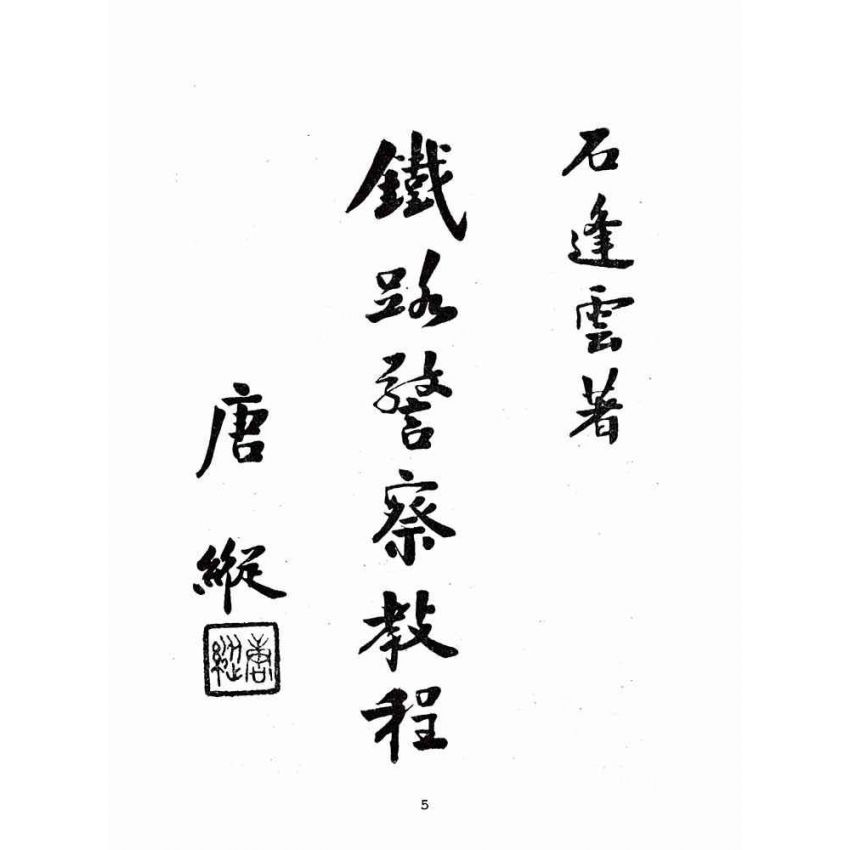 石逢雲著
鐵路警察教程
唐縱
唐縱
5